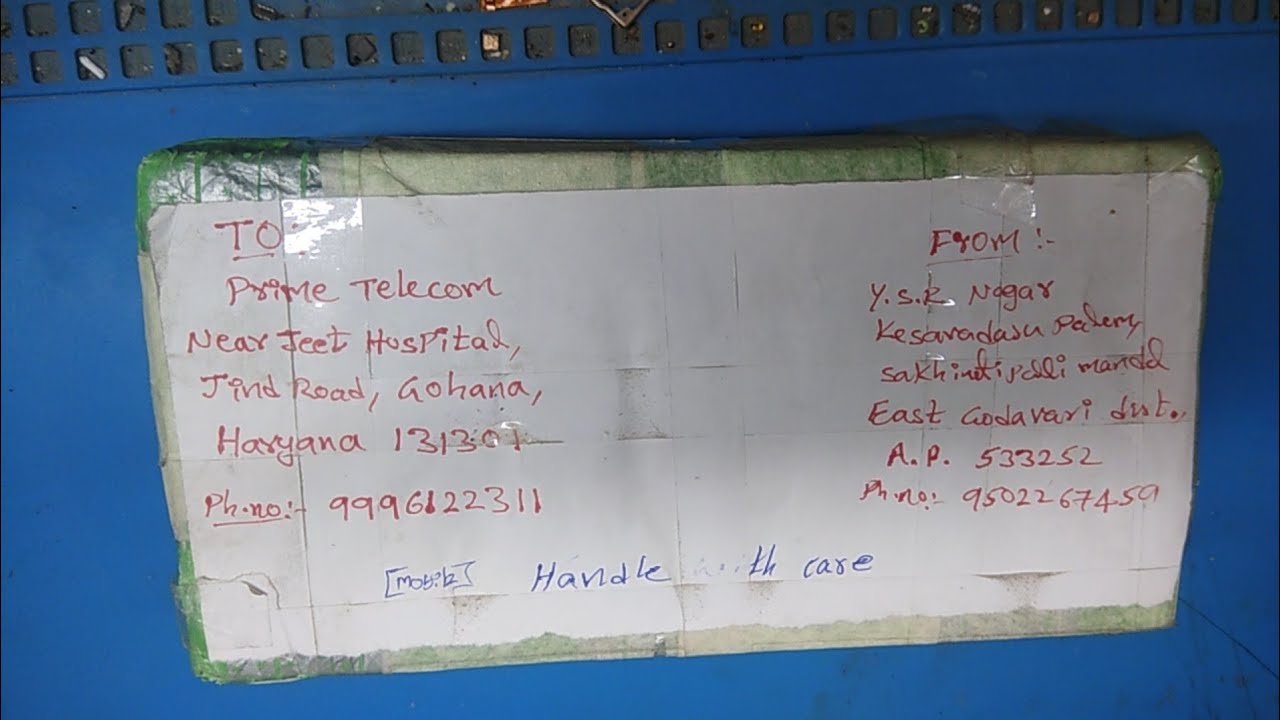 TO:
Prime Telecom
Near Jeet Hospital,
Jind Road, Gohana,
Haryana 131301
Ph.no:- 9996122311
From :-
Y.S.R. Nagar
Kesavadasu Palem,
sakhinetipalli mandal
East Godavari dist.,
A.P. 533252
Ph.no:- 9502267459
[mobile] Handle with care